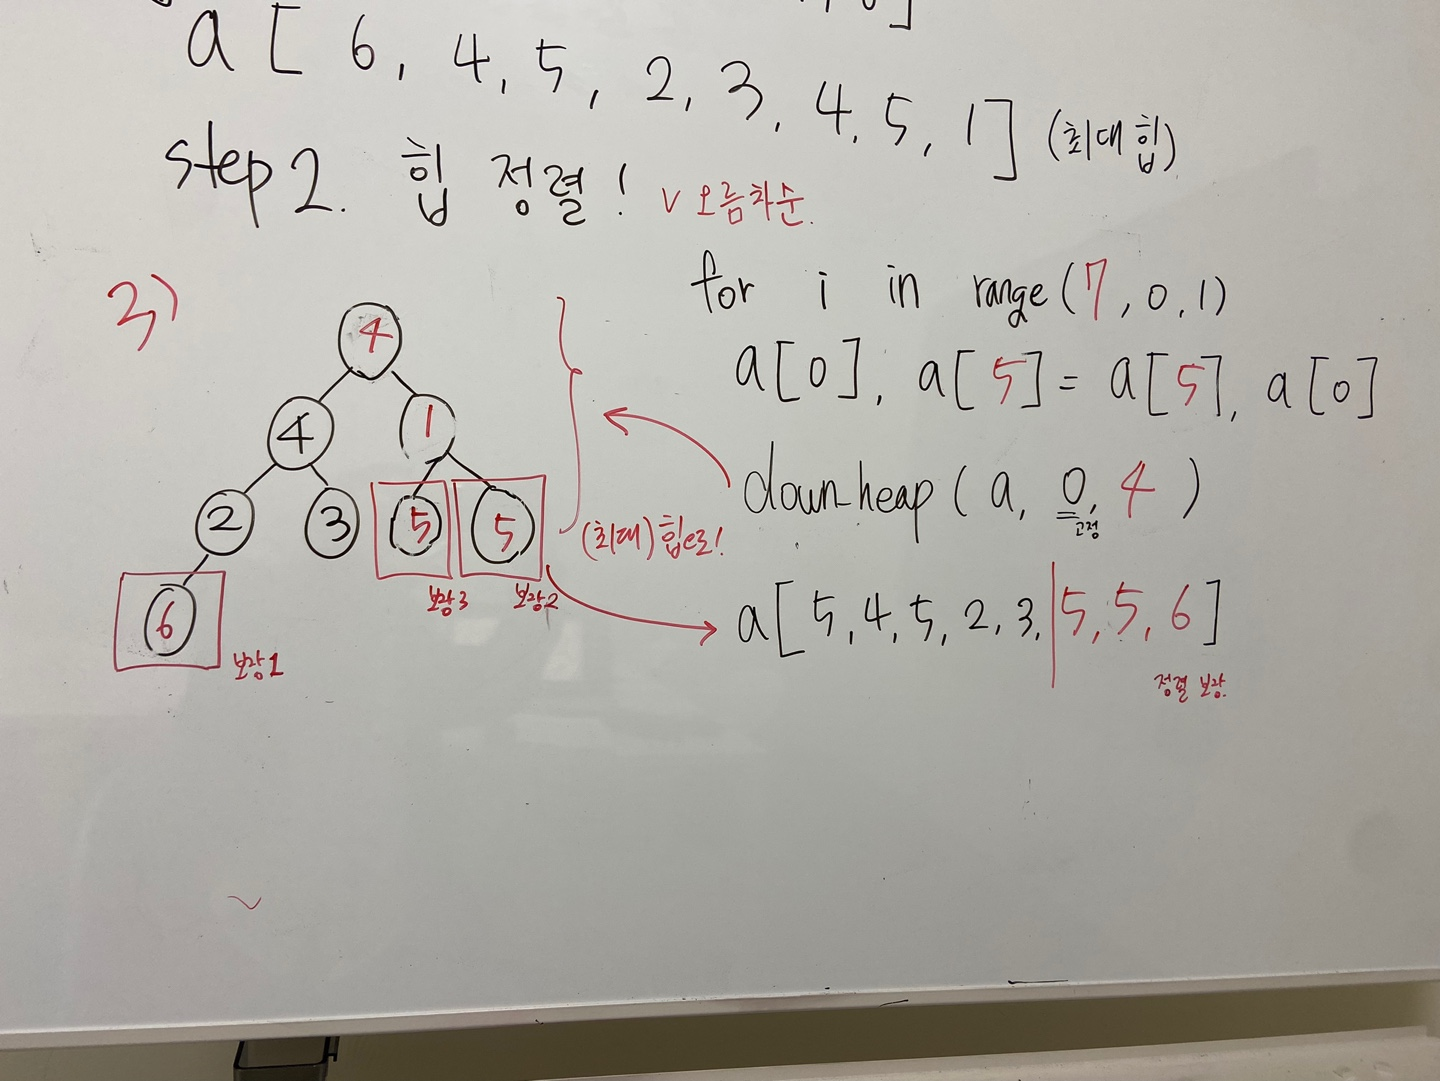 a [ 6, 4, 5, 2, 3, 4, 5, 1 ] (최대 힙)
step 2. 힙 정렬! v 오름차순.
3)
for i in range(7, 0, 1)
a[0], a[5] = a[5], a[0]
down_heap(a, 0, 4)
고정
4
4 1
2 3 5 5
(최대) 힙으로!
보장3 보장2
6
보장1
a[5, 4, 5, 2, 3, | 5, 5, 6]
정렬 보장.